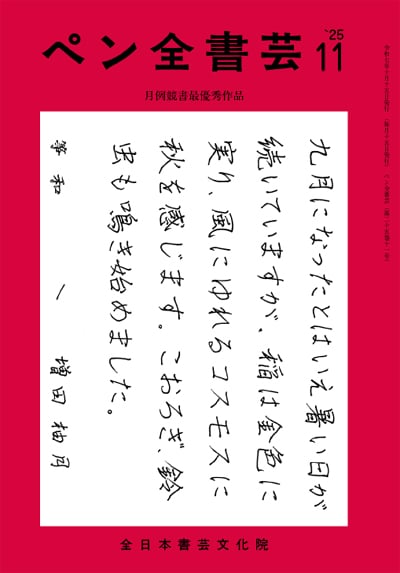 ペン全書芸
'25
11
月例競書最優秀作品
九月になったとはいえ暑い日が
続いていますが、稲は金色に
実り、風にゆれるコスモスに
秋を感じます。こおろぎ、鈴
虫も鳴き始めました。
和 増田柚月
全日本書芸文化院